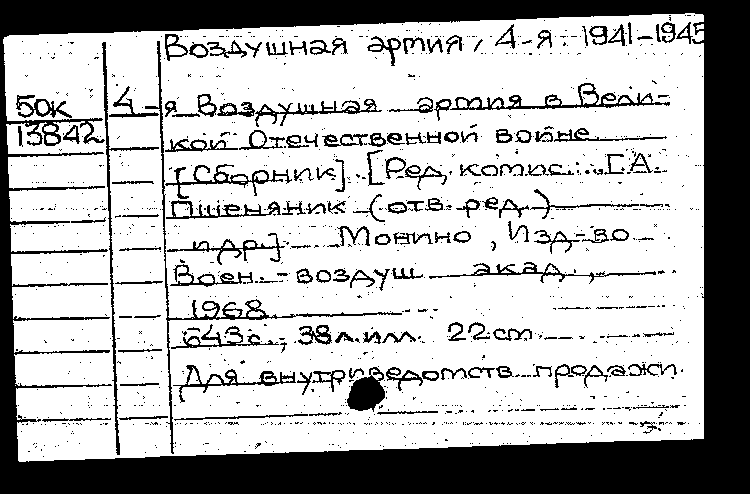 Воздушная армия, 4-я. 1941-1945
50к
13842
4-я Воздушная армия в Вели-
кой Отечественной войне
[Сборник]. [Ред. комис.: Г.А.
Пшеняник (отв. ред.)
и др.]. Монино, Изд-во
Воен.-воздуш акад.,
1968
643с., 38л.илл. 22cm.
Для внутриведомств. продажи.